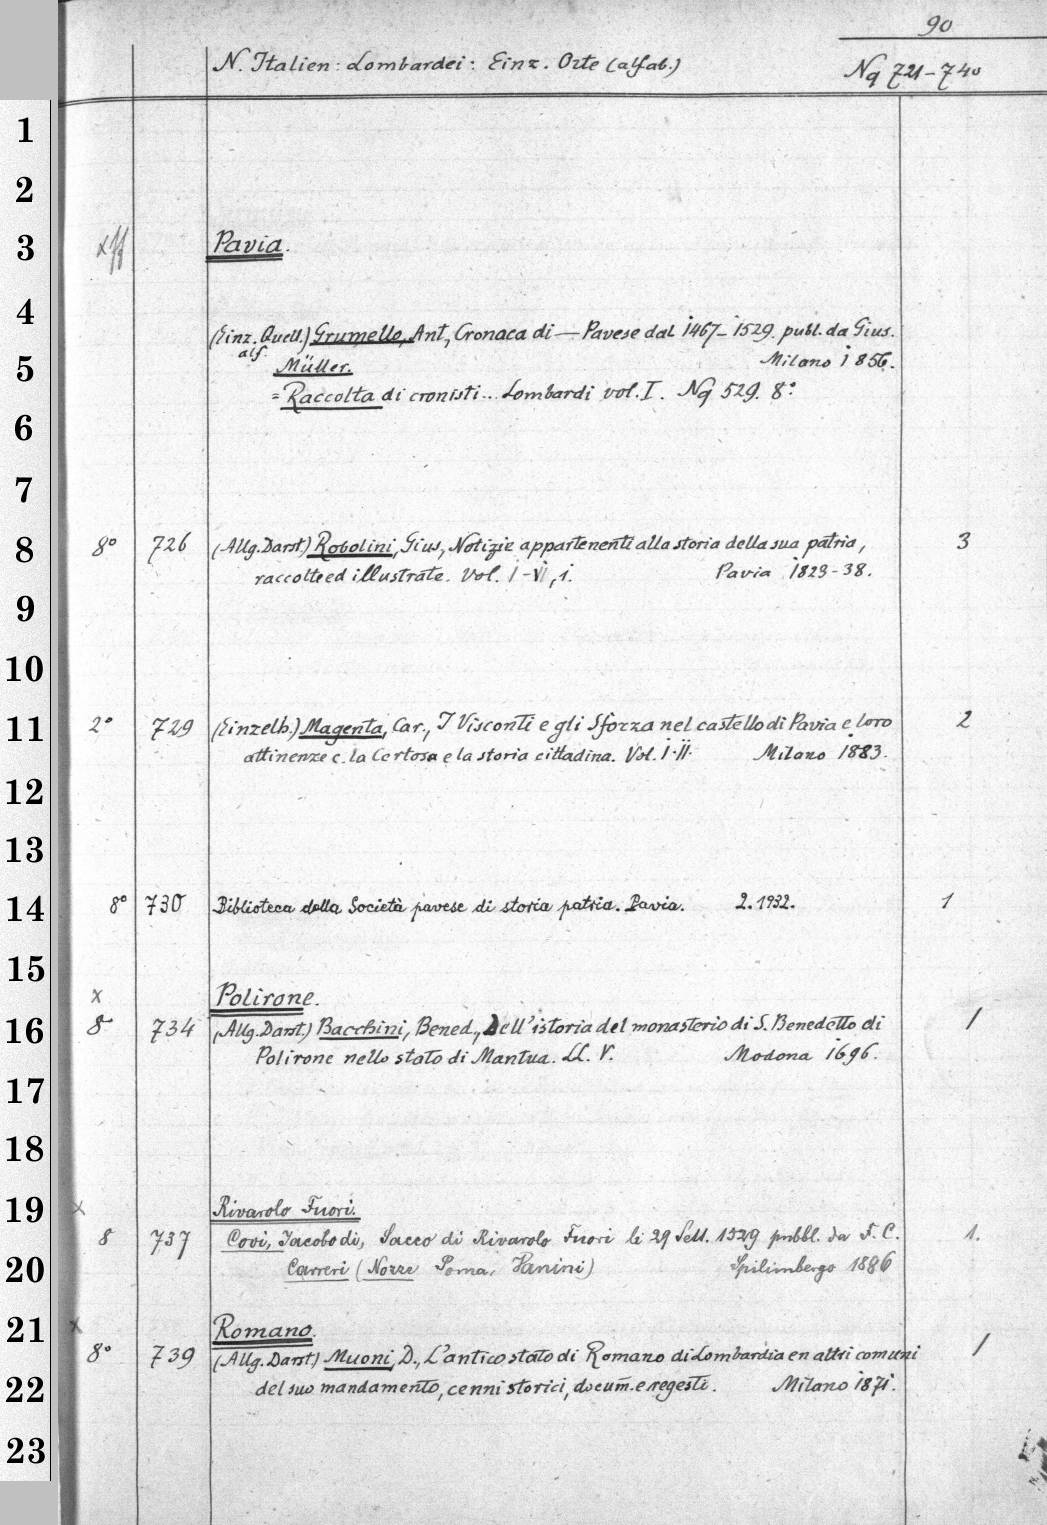 90
N. Italien: Lombardei: Einz. Orte (alfab.)
Nq 721-740
1
2
3 Pavia.
4 (Einz. Quell.) Grumello, Ant, Cronaca di — Pavese dal 1467-1529. publ. da Gius.
alf.
5 Müller. Milano 1856.
= Raccolta di cronisti... Lombardi vol. I. Nq 529. 8°
6
7
8 8° 726 (Allg. Darst.) Robolini, Gius, Notizie appartenenti alla storia della sua patria, 3
raccolte ed illustrate. Vol. I-VI, 1. Pavia 1823-38.
9
10
11 2° 729 (Einzelh.) Magenta, Car., I Visconti e gli Sforza nel castello di Pavia e loro 2
attinenze c. la Certosa e la storia cittadina. Vol. I-II. Milano 1883.
12
13
14 8° 730 Biblioteca della Società pavese di storia patria. Pavia. 2. 1932. 1
15
x Polirone.
16 8° 734 (Allg. Darst.) Bacchini, Bened., Dell'istoria del monasterio di S. Benedetto di 1
Polirone nello stato di Mantua. LL. V. Modona 1696.
17
18
19 x Rivarolo Fuori.
8 737 Covi, Jacobo di, Sacco di Rivarolo Fuori li 29 Sett. 1529 pubbl. da F. C. 1.
20 Carreri (Nozze Poma, Vanini) Spilimbergo 1886
21 x Romano.
8° 739 (Allg. Darst) Muoni, D., L'antico stato di Romano di Lombardia en altri comuni 1
22 del suo mandamento, cenni storici, docum. e regesti. Milano 1871.
23